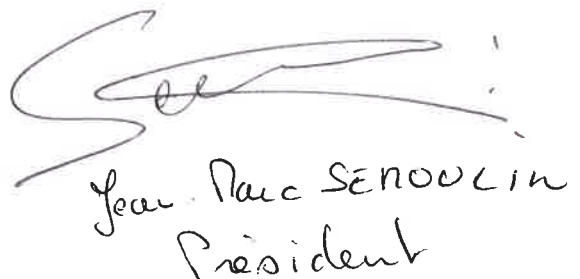 Jean-Marc SEMOULIN
Président